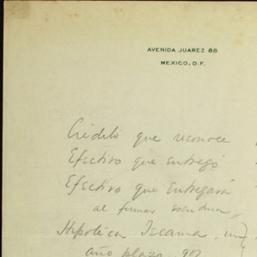 AVENIDA JUAREZ 88
MEXICO, D.F.
Crédito que reconoce
Efectivo que entregó
Efectivo que entregará
al firmar
Hipoteca
año plazo 9%